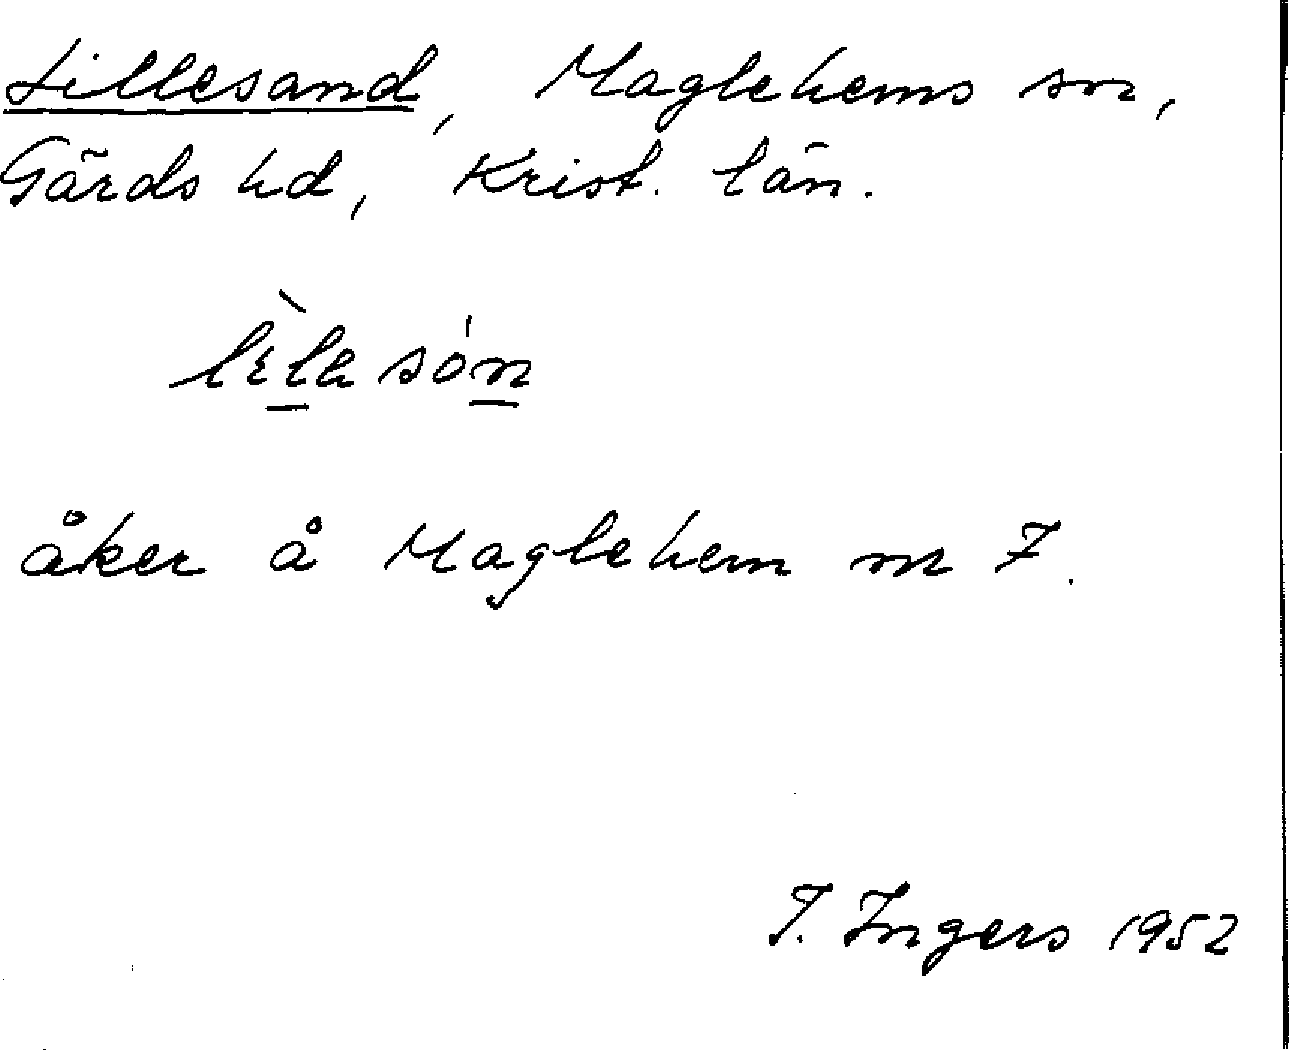 Lillesand, Maglehems sn,
Gärds hd, Krist. län.
åker å Maglehem nr 7.
I. Ingers 1952